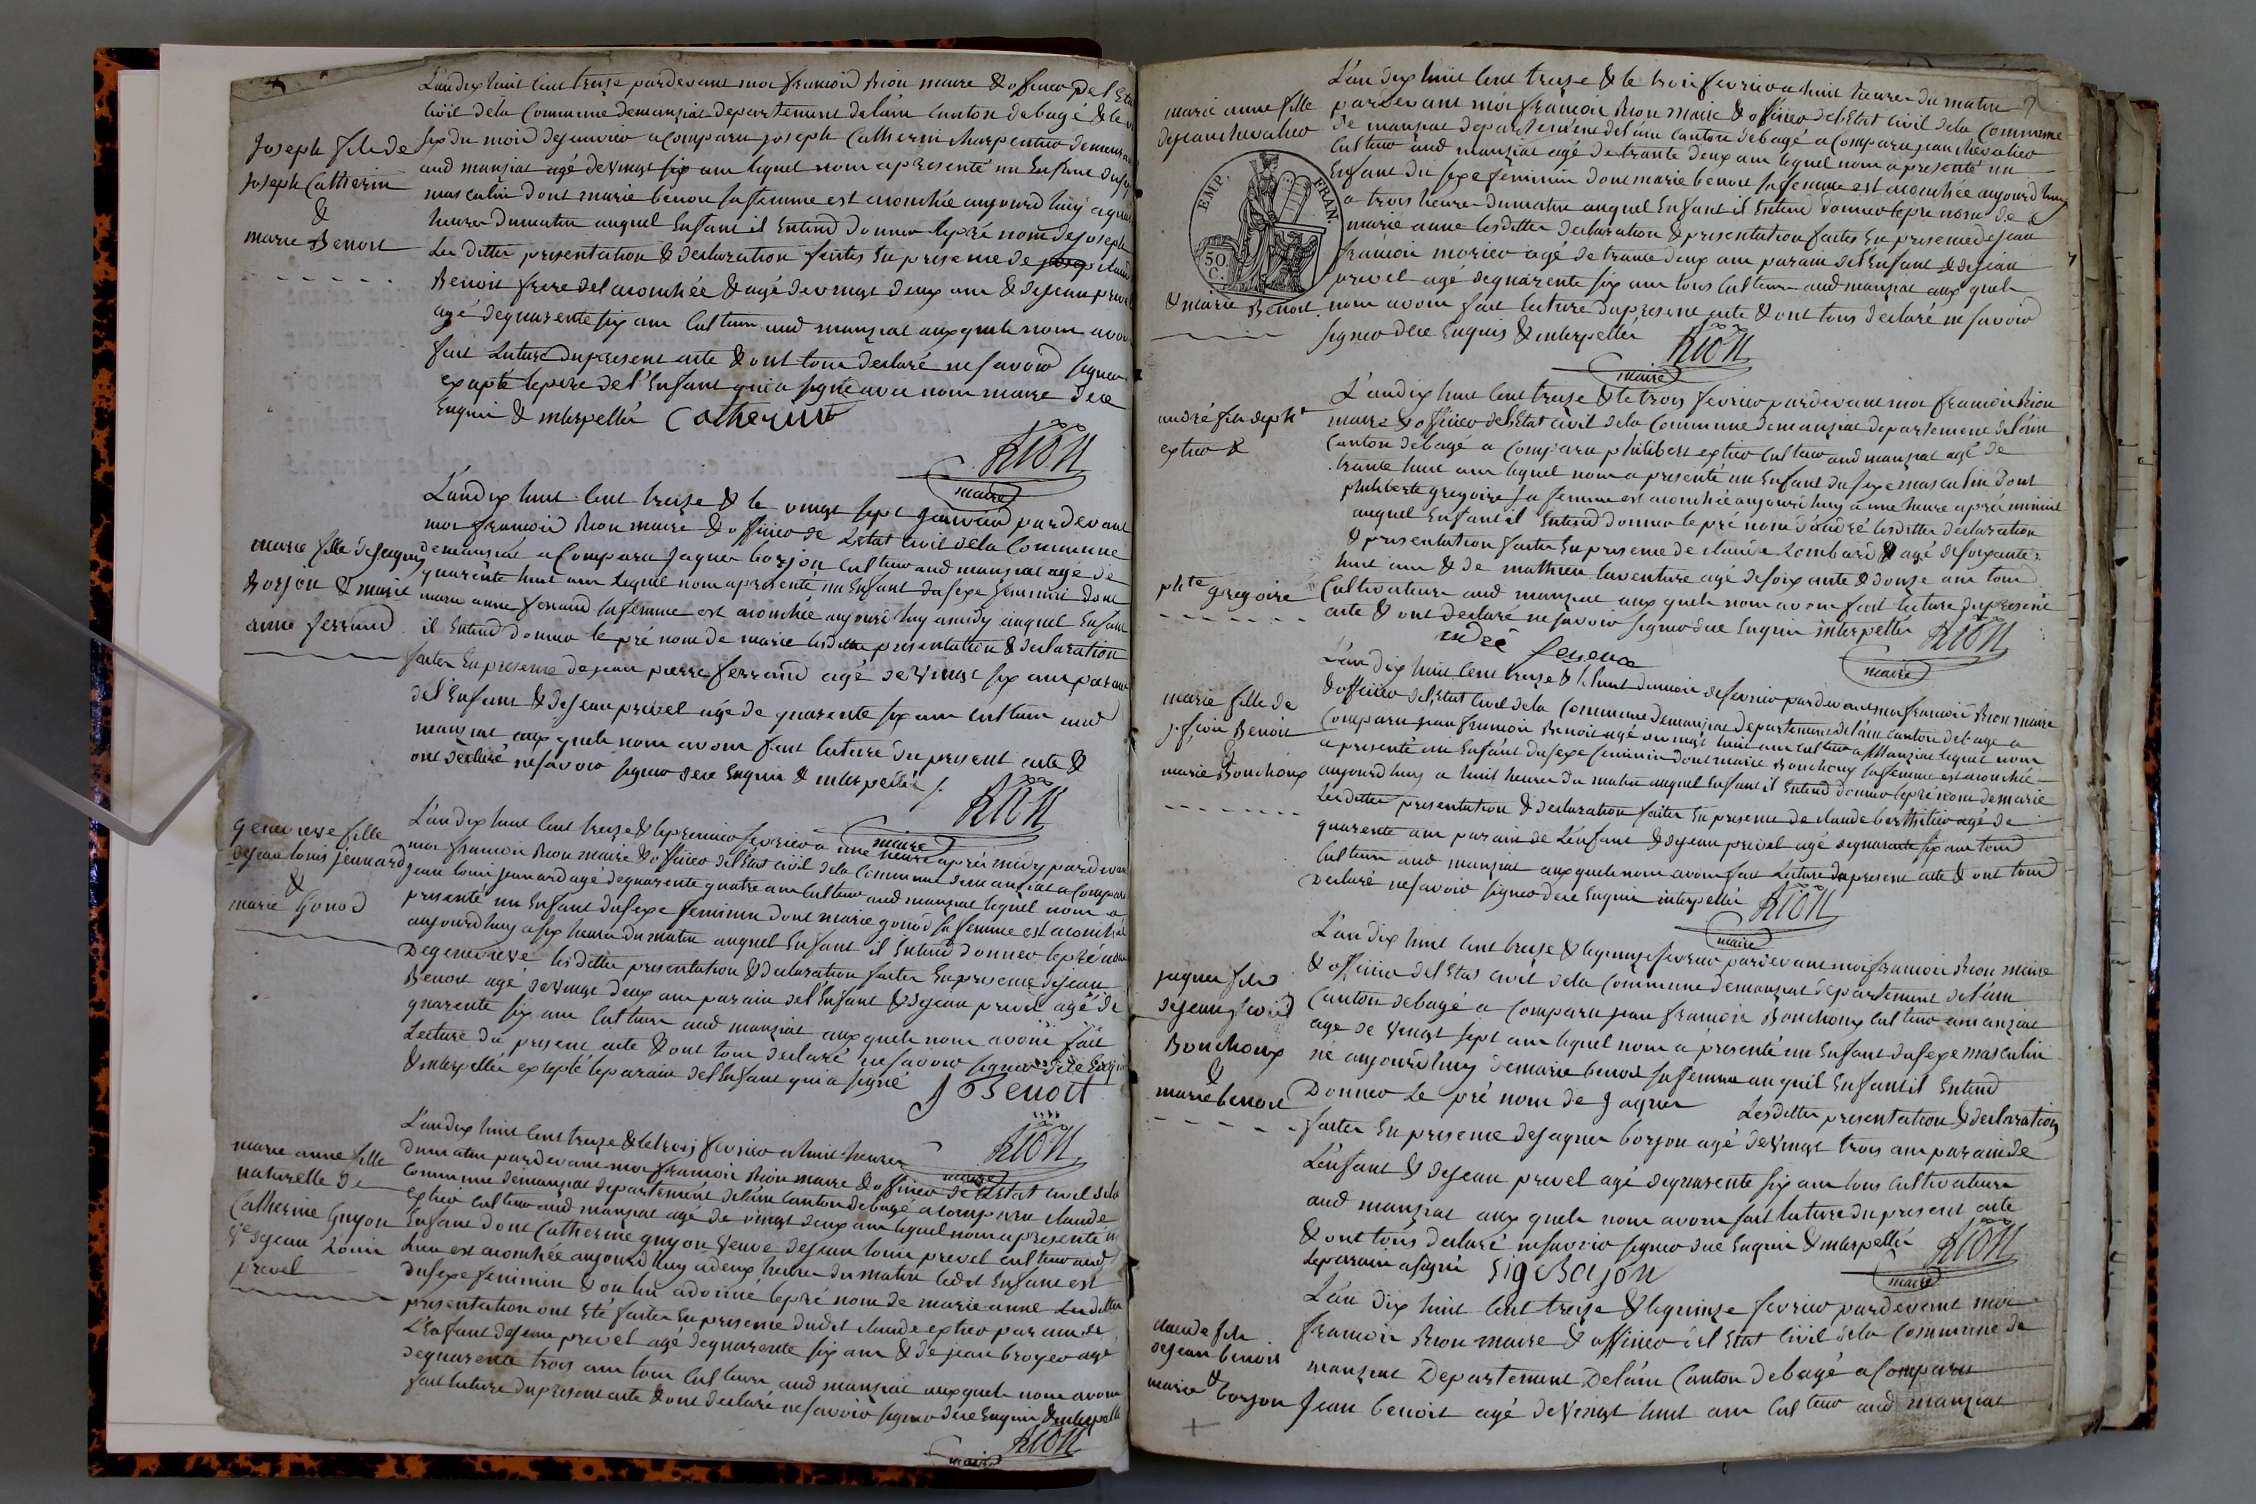 L'an dix huit cent treize pardevant moi françois Rion maire & officier de l'Etat
civil de la Commune de manziat departement de l'ain Canton de bagé & le
six du mois de janvier a comparu joseph Catherin charpentier demeurant
aud manziat agé de vingt six ans lequel nous a presenté un Enfant du sexe
masculin dont marie benoit sa femme est acouchée aujourd'huy a quatre
heures du matin auquel Enfant il Entend donner le pré nom de joseph
Les dittes presentation & declaration faites En presence de claude
Benoit frere de l'acouchée & agé de vingt deux ans & de jean prevel
agé de quarente six ans Cultivateurs aud manziat auxquels nous avons
fait lecture du present acte & ont tous declaré ne savoir signer
exepté le pere de l'Enfant qui a signé avec nous maire de ce
Enquis & interpellés Catherin
RION
maire
Joseph fils de
joseph Catherin
&
marie Benoit
L'an dix huit cent treize & le vingt sept janvier pardevant
moi françois Rion maire & officier de L'etat Civil de la Commune
de manziat a Comparu jaques borjon cultivateur aud manziat agé de
quarente huit ans lequel nous a presenté un Enfant du sexe feminin dont
marie anne ferrand sa femme est acouchée aujourd'huy a midy auquel Enfant
il Entend donner le pré nom de marie lesdittes presentation & declaration
faites En presence de jean pierre ferrand agé de vingt six ans parain
de l'Enfant & de jean prevel agé de quarente six ans cultivateurs aud
manziat auxquels nous avons fait lecture du present acte &
ont declaré ne savoir signer de ce Enquis & interpellés /.
RION
maire
marie fille de jaques
Borjon & marie
anne ferrand
L'an dix huit cent treize & le premier fevrier a une heure après midy pardevant
moi françois Rion maire & officier de l'Etat civil de la Commune de manziat a Comparu
jean louis jennard agé de quarente quatre ans Cultivateur aud manziat lequel nous a
presenté un Enfant du sexe feminin dont marie gonod sa femme est acouchée
aujourd'huy a six heures du matin auquel Enfant il Entend donner le pré nom
De genevieve lesdittes presentation & declaration faites En presence de jean
Benoit agé de vingt deux ans parain de l'Enfant & de jean prevel agé de
quarente six ans Cultivateurs aud manziat auxquels nous avons fait
Lecture du present acte & ont tous declaré ne savoir signer de ce Enquis
& interpellés exepté le parain de l'Enfant qui a signé J Benoit
RION
maire
genevieve fille
de jean louis jennard
&
marie Gonod
L'an dix huit cent treize & le trois fevrier a huit heures
du matin pardevant moi françois Rion maire & officier de l'Etat civil de la
Commune de manziat departement de l'ain Canton de bagé a comparu claude
extier cultivateur aud manziat agé de vingt deux ans lequel nous a presenté un
Enfant dont Catherine guyon veuve de jean louis prevel cultivateur aud
lieu est acouchée aujourd'huy a deux heures du matin ledit Enfant est
du sexe feminin & on lui a donné le pré nom de marie anne Lesdittes
presentation ont Eté faites En presence dudit claude extier parain de
L'Enfant de jean prevel agé de quarente six ans & de jean broyer agé
de quarente trois ans tous Cultivateurs aud manziat auxquels nous avons
fait lecture du present acte & ont declaré ne savoir signer de ce Enquis & interpellés
RION
maire
marie anne fille
naturelle de
Catherine Guyon
Ve de jean Louis
prevel
L'an dix huit cent treize & le trois fevrier a huit heures du matin
pardevant moi françois Rion maire & officier de l'Etat civil de la Commune
de manziat departement de l'ain Canton de bagé a comparu jean chevalier
Cultivateur aud manziat agé de trante deux ans lequel nous a presenté un
Enfant du sexe feminin dont marie benoit sa femme est acouchée aujourd'huy
a trois heures du matin auquel Enfant il Entend donner le pré nom de
marie anne lesdittes declaration & presentation faites En presence de jean
françois morier agé de trante deux ans parain de l'Enfant & de jean
prevel agé de quarente six ans tous Cultivateurs aud manziat auxquels
nous avons fait lecture du present acte & ont tous declaré ne savoir
signer de ce Enquis & interpellés
RION
maire
marie anne fille
de jean chevalier
EMP. FRAN.
50
C.
& marie Benoit
L'an dix huit cent treize & le trois fevrier pardevant moi françois Rion
maire & officier de l'Etat civil de la Commune de manziat departement de l'ain
Canton de bagé a comparu philibert extier cultivateur aud manziat agé de
trante huit ans lequel nous a presenté un Enfant du sexe masculin dont
philiberte gregoire sa femme est acouchée aujourd'huy a une heure après minuit
auquel Enfant il Entend donner le pré nom d'andré lesdittes declaration
& presentation faites En presence de claude Lombard & agé de soixante
huit ans & de mathieu laventure agé de soixante & douze ans tous
Cultivateurs aud manziat auxquels nous avons fait lecture du present
acte & ont declaré ne savoir signer de ce Enquis interpellés
RION
maire
andré fils de pht
extier &
phte gregoire
L'an dix huit cent treize & le huit du mois de fevrier pardevant moi françois Rion maire
& officier de l'Etat Civil de la Commune de manziat departement de l'ain Canton de bagé a
Comparu jean françois Benoit agé de vingt huit ans cultivateur a Manziat lequel nous
a presenté un Enfant du sexe feminin dont marie Bonchoux sa femme est acouchée
aujourd'huy a huit heures du matin auquel Enfant il Entend donner le pré nom de marie
Les dittes presentation & declaration faites En presence de claude berthilier agé de
quarente ans parain de L'enfant & de jean prevel agé de quarante six ans tous
Cultivateurs aud manziat auxquels nous avons fait Lecture du present acte & ont tous
Declaré ne savoir signer de ce Enquis interpellés
RION
maire
marie fille de
j. fçois Benoit
marie Bonchoux
L'an dix huit cent treize & le quinze fevrier pardevant moi françois Rion maire
& officier de l'Etat civil de la Commune de manziat departement de l'ain
Canton de bagé a Comparu jean françois Bonchoux cultivateur a manziat
agé de vingt sept ans lequel nous a presenté un Enfant du sexe masculin
né aujourd'huy de marie benoit sa femme auquel Enfant il Entend
Donner Le pré nom de jaques Lesdittes presentation & declaration
faites En presence de jaques borjon agé de vingt trois ans parain de
L'enfant & de jean prevel agé de quarente six ans tous cultivateurs
aud manziat auxquels nous avons fait lecture du present acte
& ont tous declaré ne savoir signer de ce Enquis & interpellés
le parain a signé
RION
maire
jaques fils
de jean fçois
Bonchoux
&
marie benoit
L'an dix huit cent treize & le quinze fevrier pardevant moi
françois Rion maire & officier de l'Etat Civil de la Commune de
manziat Departement De l'ain Canton de bagé a Comparu
Jean benoit agé de vingt huit ans cultivateur aud manziat
claude fils
de jean benoit
&
marie borjon